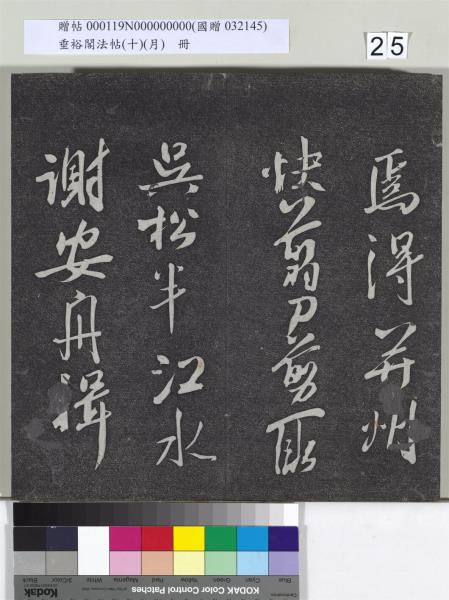 贈帖 000119N000000000(國贈 032145)
垂裕閣法帖(十)(月) 冊
25
焉得并州
快剪刀剪取
吳松半江水
謝安舟楫
Blue
Cyan
Green
Yellow
Red
Magenta
White
3/Color
Black
Kodak Color Control Patches
Kodak